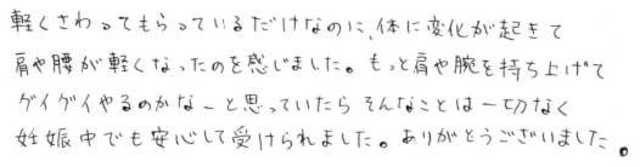 軽くさわってもらっているだけなのに、体に変化が起きて
肩や腰が軽くなったのを感じました。もっと肩や腕を持ち上げて
グイグイやるのかなーと思っていたらそんなことは一切なく
妊娠中でも安心して受けられました。ありがとうございました。